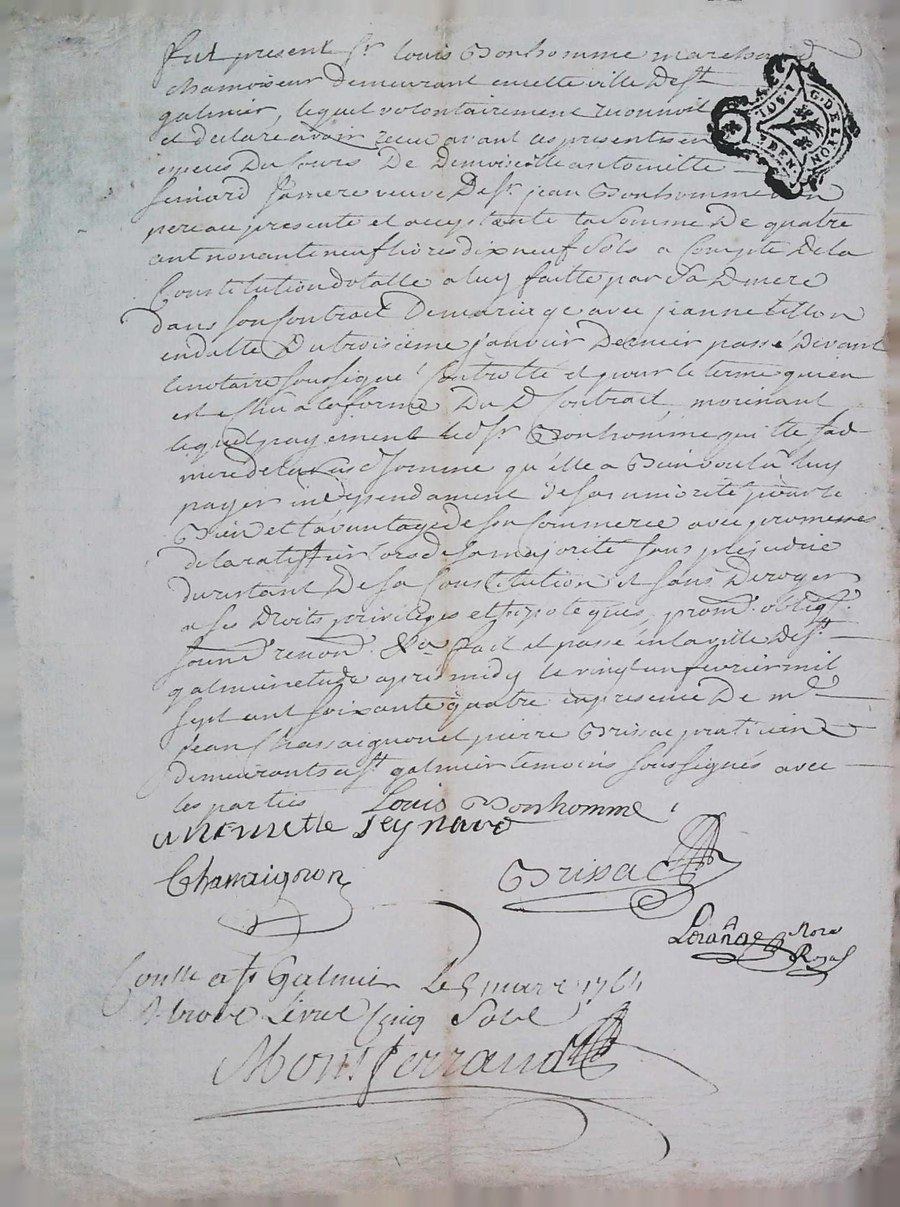 Fut present Sr louis Bonhomme marchand
chamoiseur demeurant en cette ville de St
galmier, lequel volontairement reconnoit
et declare avoir receu avant ces presentes en
especes du cours De Demoiselle antoinette
veuve De Sr jean Bonhomme son
pere au presente et acceptante la Somme De quatre
cent nonante neuf livres dix neuf Sols a Compte De la
Constitution dotalle a luy faitte par Sa D mere
dans son Contract De mariage avec jeanne tillon
en datte Du troisieme janvier Dernier passé Devant
le notaire soussigné Controllé et pour le terme qui en
est echu a la forme Du D Contract, moienant
lequel payement led Sr Bonhomme quitte sad
mere de lad somme qu'elle a Bien voulu luy
payer independament de sa minorité pour le
Bien et l'avantage de son Commerce avec promesse
de la ratiffier lors de sa majorité sans prejudice
du restant De sa Constitution et sans Deroger
a ses Droits privileges et hipoteques, prom. oblig.
soum. renon. &a fait et passé en la ville de St
galmier etude apres midy le vingt un fevrier mil
sept cent soixante quatre en presence De me
jean Chassaignon et pierre Brissac praticiens
demeurants a St galmier temoins soussignés avec
les parties Louis Bonhomme
antoinette Seynard
Chassaignon
Brissac
G. DE LYON
DEN.
Conllé a St Galmier Le 5 mars 1764
Livre Cinq Sols
Montferrand